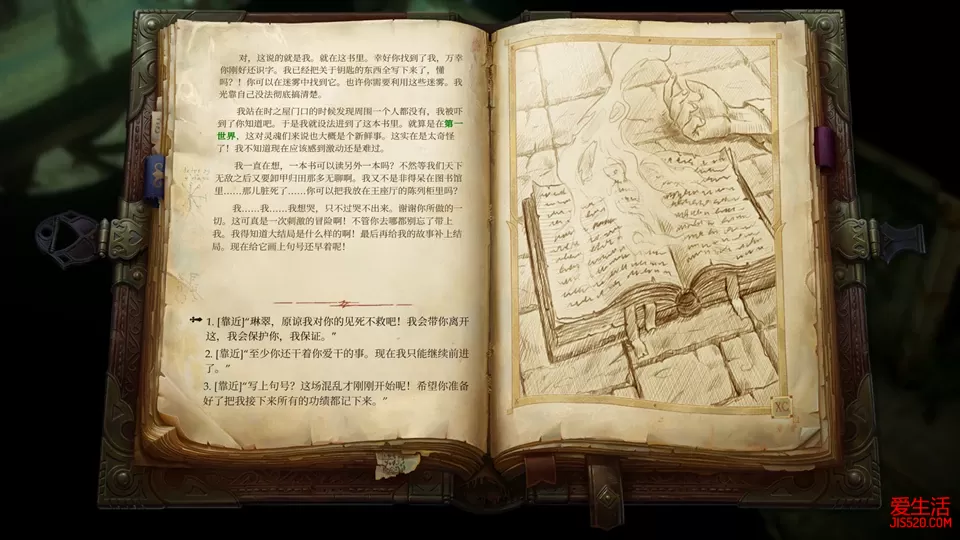 对，这说的就是我。就在这书里。幸好你找到了我，万幸
你刚好还识字。我已经把关于钥匙的东西全写下来了，懂
吗？！你可以在迷雾中找到它。也许你需要利用这些迷雾。我
光靠自己没法彻底搞清楚。
我站在时之屋门口的时候发现周围一个人都没有，我被吓
到了你知道吧。于是我就设法进到了这本书里。就算是在第一
世界，这对灵魂们来说也大概是个新鲜事。这实在是太奇怪
了！我不知道现在应该感到激动还是难过。
我一直在想，一本书可以读另外一本吗？不然等我们天下
无敌之后又要卸甲归田那多无聊啊。我又不是非得呆在图书馆
里……那儿脏死了……你可以把我放在王座厅的陈列柜里吗？
我……我……我想哭，只不过哭不出来。谢谢你所做的一
切。这可真是一次刺激的冒险啊！不管你去哪都别忘了带上
我。我得知道大结局是什么样的啊！最后再给我的故事补上结
局。现在给它画上句号还早着呢！
1. [靠近]“琳翠，原谅我对你的见死不救吧！我会带你离开
这，我会保护你，我保证。”
2. [靠近]“至少你还干着你爱干的事。现在我只能继续前进
了。”
3. [靠近]“写上句号？这场混乱才刚刚开始呢！希望你准备
好了把我接下来所有的功绩都记下来。”
XC
爱生活
JIS520.COM